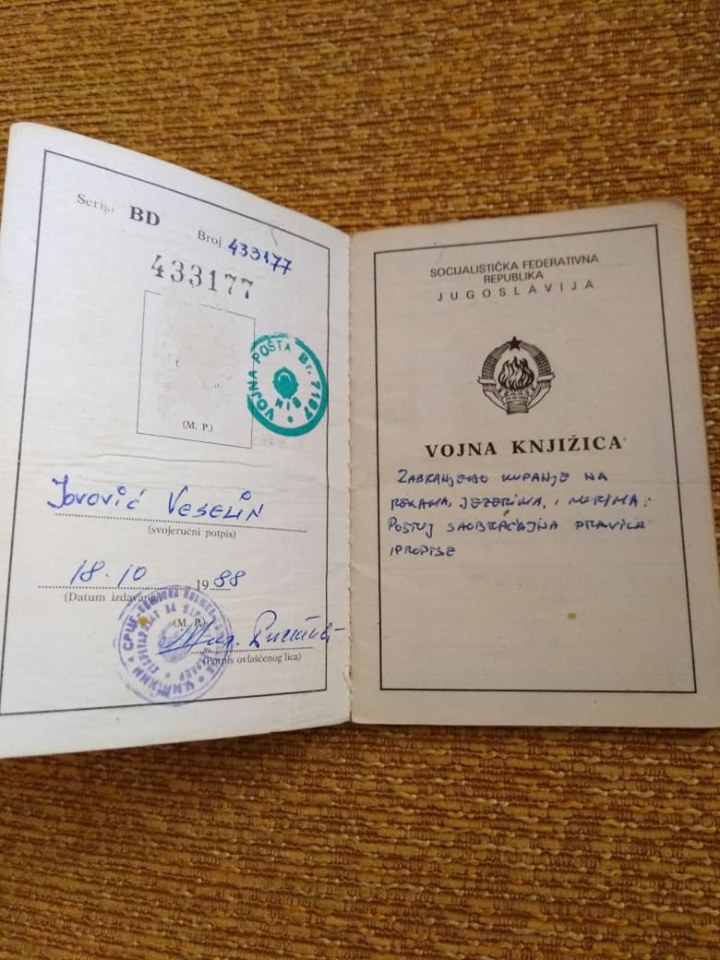 Serija BD
Broj 433177
433177
VOJNA POŠTA Br. 7167
NIŠ
(M. P.)
Jovović Veselin
(svojeručni potpis)
18.10 1988
(Datum izdavanja)
(M. P.)
(Potpis ovlašćenog lica)
SOCIJALISTIČKA FEDERATIVNA
REPUBLIKA
JUGOSLAVIJA
VOJNA KNJIŽICA
ZABRANJENO KUPANJE NA
REKAMA, JEZERIMA, I MORIMA:
POSTUJ SAOBRAĆAJNA PRAVILA
I PROPISE